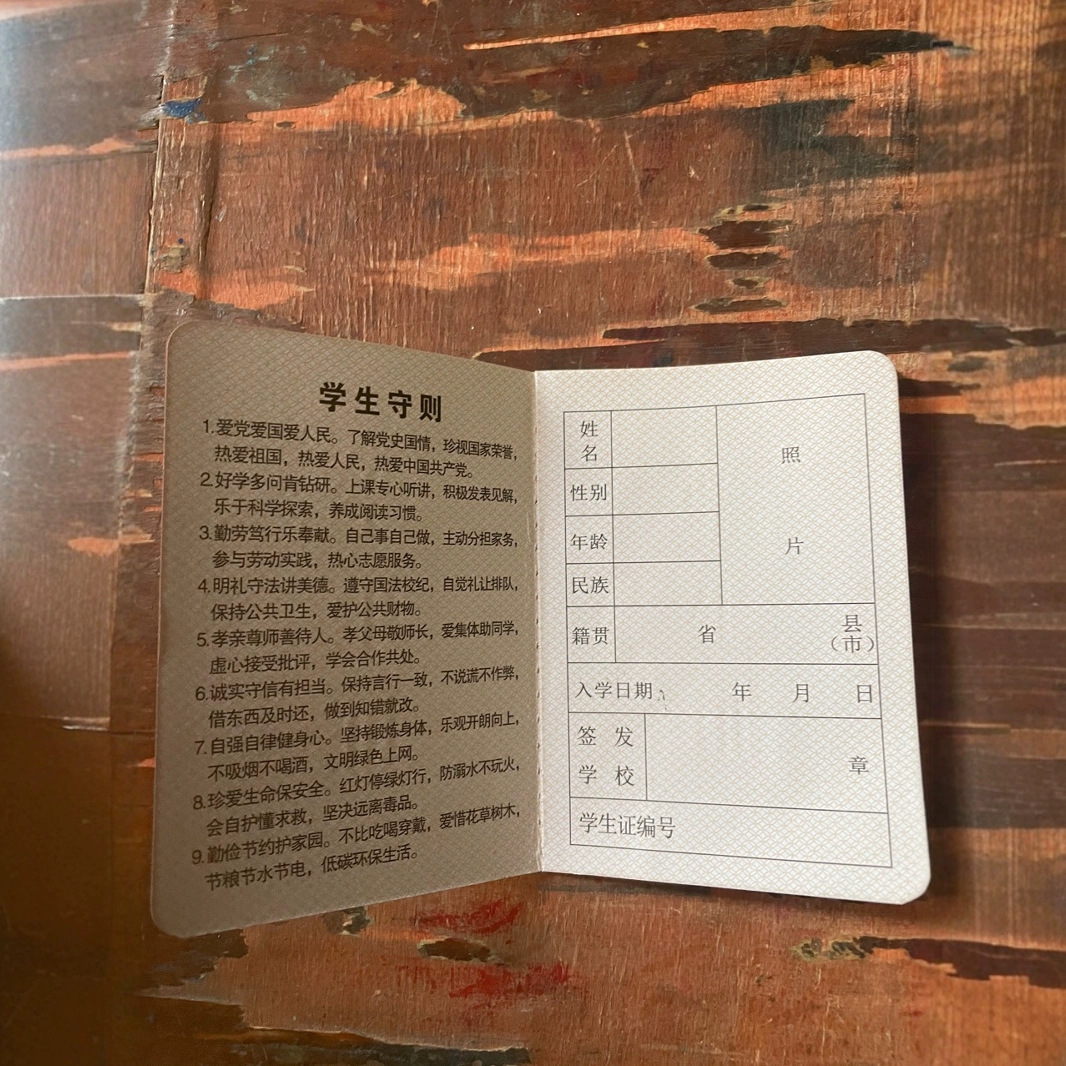 学生守则
1.爱党爱国爱人民。了解党史国情，珍视国家荣誉，
热爱祖国，热爱人民，热爱中国共产党。
2.好学多问肯钻研。上课专心听讲，积极发表见解，
乐于科学探索，养成阅读习惯。
3.勤劳笃行乐奉献。自己事自己做，主动分担家务，
参与劳动实践，热心志愿服务。
4.明礼守法讲美德。遵守国法校纪，自觉礼让排队，
保持公共卫生，爱护公共财物。
5.孝亲尊师善待人。孝父母敬师长，爱集体助同学，
虚心接受批评，学会合作共处。
6.诚实守信有担当。保持言行一致，不说谎不作弊，
借东西及时还，做到知错就改。
7.自强自律健身心。坚持锻炼身体，乐观开朗向上，
不吸烟不喝酒，文明绿色上网。
8.珍爱生命保安全。红灯停绿灯行，防溺水不玩火，
会自护懂求救，坚决远离毒品。
9.勤俭节约护家园。不比吃喝穿戴，爱惜花草树木，
节粮节水节电，低碳环保生活。
姓名
照片
性别
年龄
民族
籍贯 省 县（市）
入学日期 年 月 日
签发学校 章
学生证编号